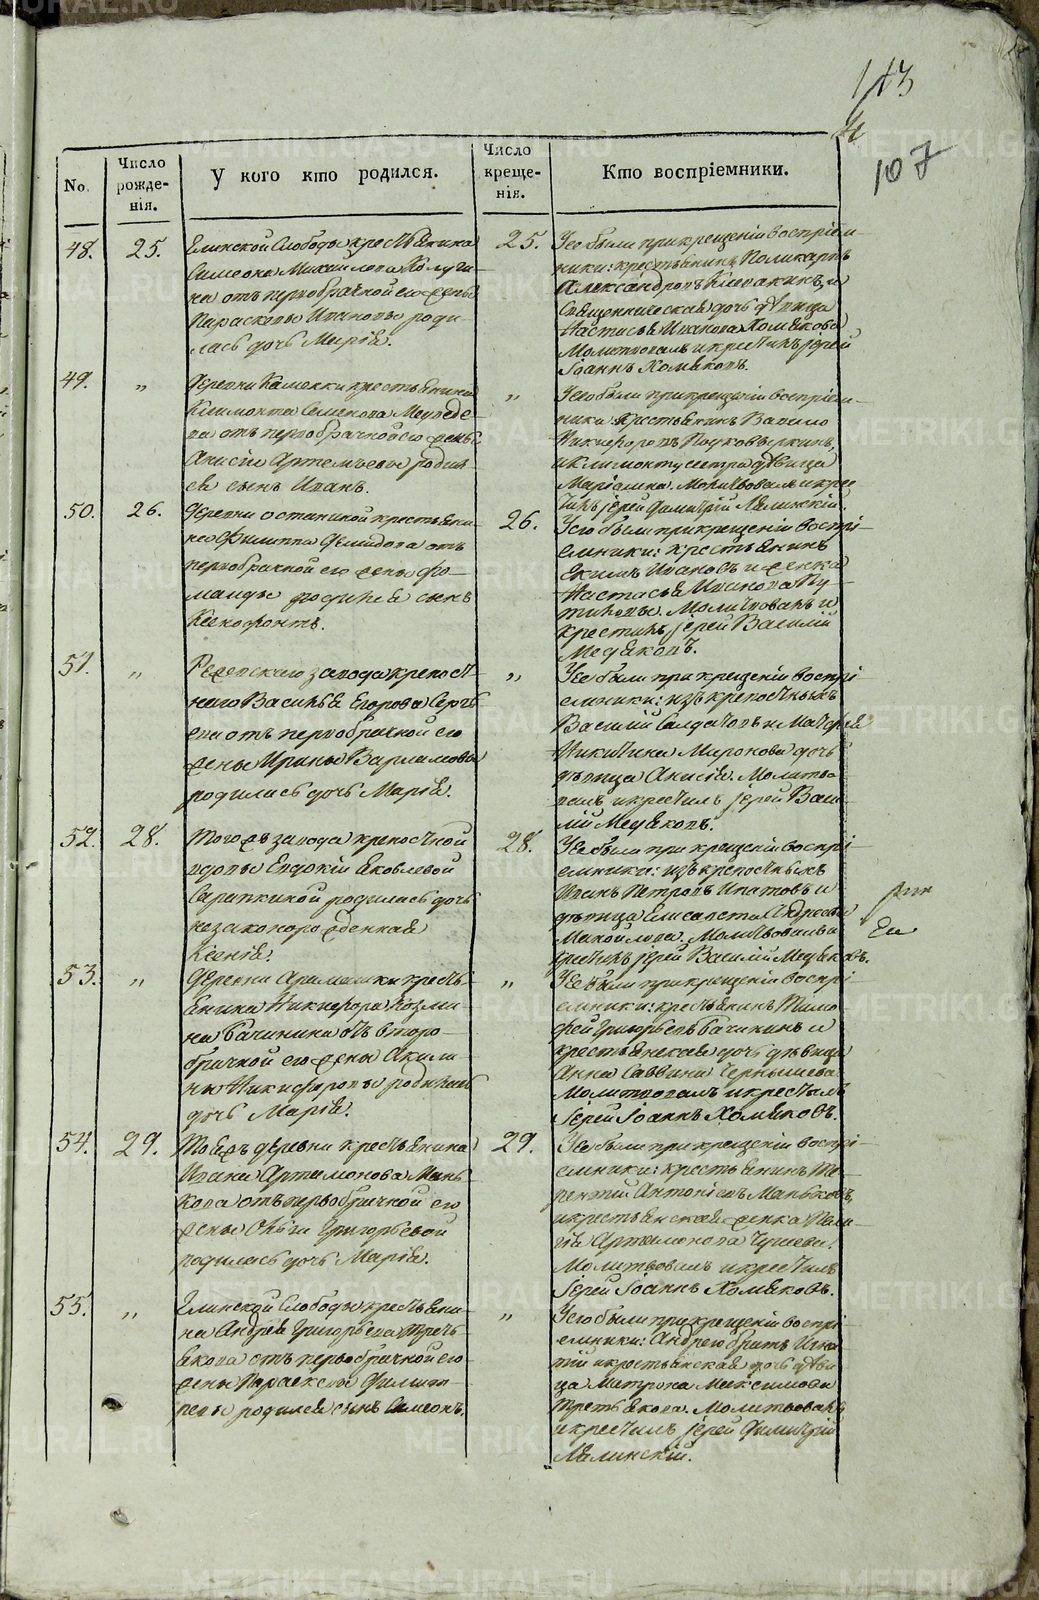 113
107
No.
Число рожденія.
У кого кто родился.
Число крещенія.
Кто воспріемники.
48.
25.
Глинской Слободы крестьянина
Симеона Михайлова Колуги-
на отъ первобрачной его жены
Параскевы Ивановы роди-
лась дочь Марія.
25.
У ео были при крещеніи воспріем-
ники: крестьянинъ Поликарпъ
Александровъ Клевакинъ, и
Священническая дочь дѣвица
Настасья Иванова Хомякова
Молитвовалъ и крестилъ іерей
Іоаннъ Хомяковъ.
49.
„
Деревни Каменки крестьянина
Климонта Семенова Медведе-
ва отъ первобрачной его жены
Анисіи Артемьевы родил-
ся сынъ Иванъ.
„
У его были при крещеніи воспріем-
ники: крестьянинъ Василій
Никифоровъ
и Климонту сестра дѣвица
Маріамна. Молитвовалъ и крес-
тилъ іерей Димитрій Лялинскій.
50.
26.
Деревни Останиной крестьяни-
на Филиппа Демидова отъ
первобрачной его жены До-
маиды родился сынъ
Ксенофонтъ.
26.
У его были при крещеніи воспрі-
емники: крестьянинъ
Екимъ Ивановъ и женка
Настасья Иванова Пу-
тиловы. Молитвовалъ и
крестилъ іерей Василій
Медяковъ.
51.
„
Режевскаго завода крепост-
наго Василья Егорова Серге-
ева отъ первобрачной его
жены Ирины Варламовы
родилась дочь Марія.
„
У ее были при крещеніи воспрі-
емники: изъ крепостныхъ
Василій Салдатовъ и Матфея
Никитина Миронова дочь
дѣвица Анисія. Молитво-
валъ и крестилъ іерей Васи-
лій Медяковъ.
52.
28.
Того жъ завода крепостной
вдовы Евдокіи Яковлевой
Сарапкиной родилась дочь
незаконорожденная
Ксенія.
28.
У ее были при крещеніи воспрі-
емники: изъ крепостныхъ
Иванъ Петровъ Ипатовъ и
дѣвица Елисавета Андреева
Манойлова. Молитвовалъ и
крестилъ іерей Василій Медяковъ.
53.
„
Деревни Арамашки кресть-
янина Никифора Козми-
на Бачинина отъ второ-
брачной его жены Акили-
ны Никифоровы родилась
дочь Марія.
„
У ее были при крещеніи воспрі-
емники: крестьянинъ Тимо-
фей Григорьевъ Бачининъ и
крестьянская дочь дѣвица
Анна Саввина Чернышева
Молитвовалъ и крестилъ
Іерей Іоаннъ Хомяковъ.
54.
29.
Тоя жъ деревни крестьянина
Ивана Артамонова Мань-
кова отъ первобрачной его
жены Ольги Григорьевой
родилась дочь Марія.
29.
У ее были при крещеніи воспрі-
емники: крестьянинъ Те-
рентій Антоніевъ Маньковъ,
и крестьянская женка Пела-
гія Артамонова Чушева.
Молитвовалъ и крестилъ
Іерей Іоаннъ Хомяковъ.
55.
„
Глинской Слободы крестьяни-
на Андрея Григорьева Треть-
якова отъ первобрачной его
жены Параскевы Филип-
повы родился сынъ Симеонъ.
„
У его были при крещеніи воспрі-
емники: Андрею братъ Игна-
тій и крестьянская дочь дѣви-
ца Матрона Максимова
Третьякова. Молитвовалъ
и крестилъ іерей Димитрій
Лялинскій.